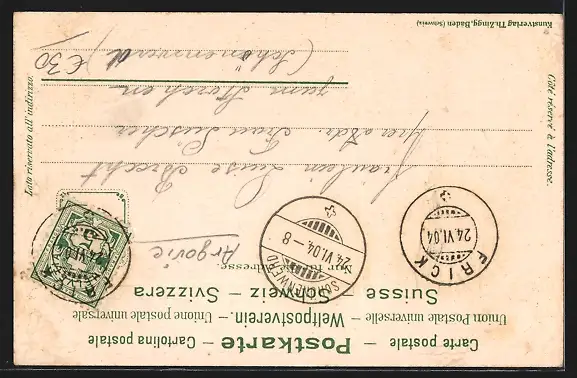 Carte postale — Postkarte — Cartolina postale
Union Postale universelle — Weltpostverein. — Unione postale universale
Suisse — Schweiz — Svizzera
Nur für die Adresse.
Argovie
FRICK
24.VI.04
SCHÖNENWERD
24.VI.04-8
Fräulein Luise Brecht
per Adr. Frau Fischer
zum Storchen
(Schönenwerd)
€30
Côté réservé à l'adresse.
Lato riservato all'indirizzo.
Kunstverlag Th. Zingg, Baden (Schweiz)